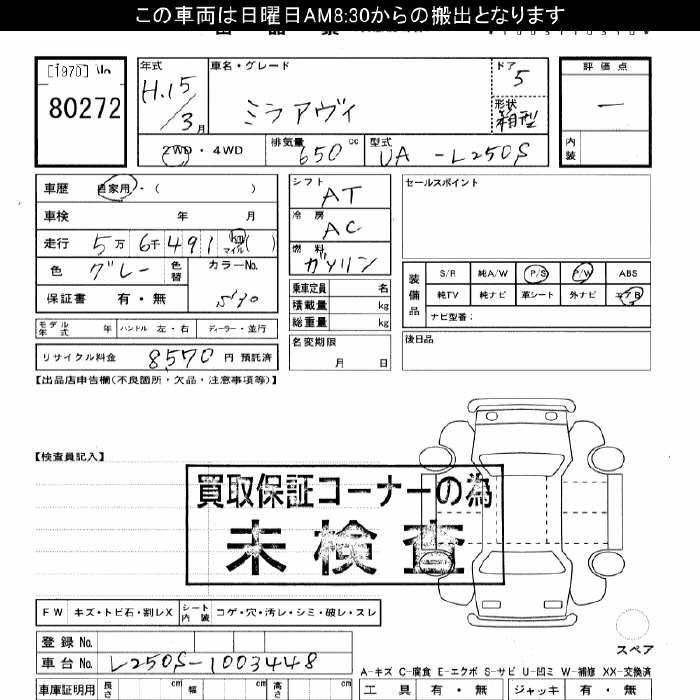 この車両は日曜日AM8:30からの搬出となります
[1970]
80272
年式 車名・グレード ドア 評価点
H.15 / 3月 ミラアヴィ 5 形状 箱型 —
内装
2WD・4WD 排気量 650 cc 型式 UA-L250S
車歴 自家用・( )
車検 年 月
走行 5万 6千 491 km マイル ( )
色 グレー 色替 カラーNo. S170
保証書 有・無
シフト AT
冷房 AC
燃料 ガソリン
乗車定員 名
積載量 kg
総重量 kg
セールスポイント
装備品 S/R 純A/W P/S P/W ABS
純TV 純ナビ 革シート 外ナビ エアB
ナビ型番:
モデル年式 年 ハンドル 左・右 ディーラー・並行
名変期限 月 日
後日品
リサイクル料金 8570 円 預託済
【出品店申告欄(不良箇所・欠品・注意事項等)】
【検査員記入】
買取保証コーナーの為
未検査
FW キズ・トビ石・割レX シート内装 コゲ・穴・汚レ・シミ・破レ・スレ
スペア
登録No.
車台No. L250S-1003448
A-キズ C-腐食 E-エクボ S-サビ U-凹ミ W-補修 XX-交換済
車庫証明用 長さ cm 幅 cm 高さ cm 工具 有・無 ジャッキ 有・無